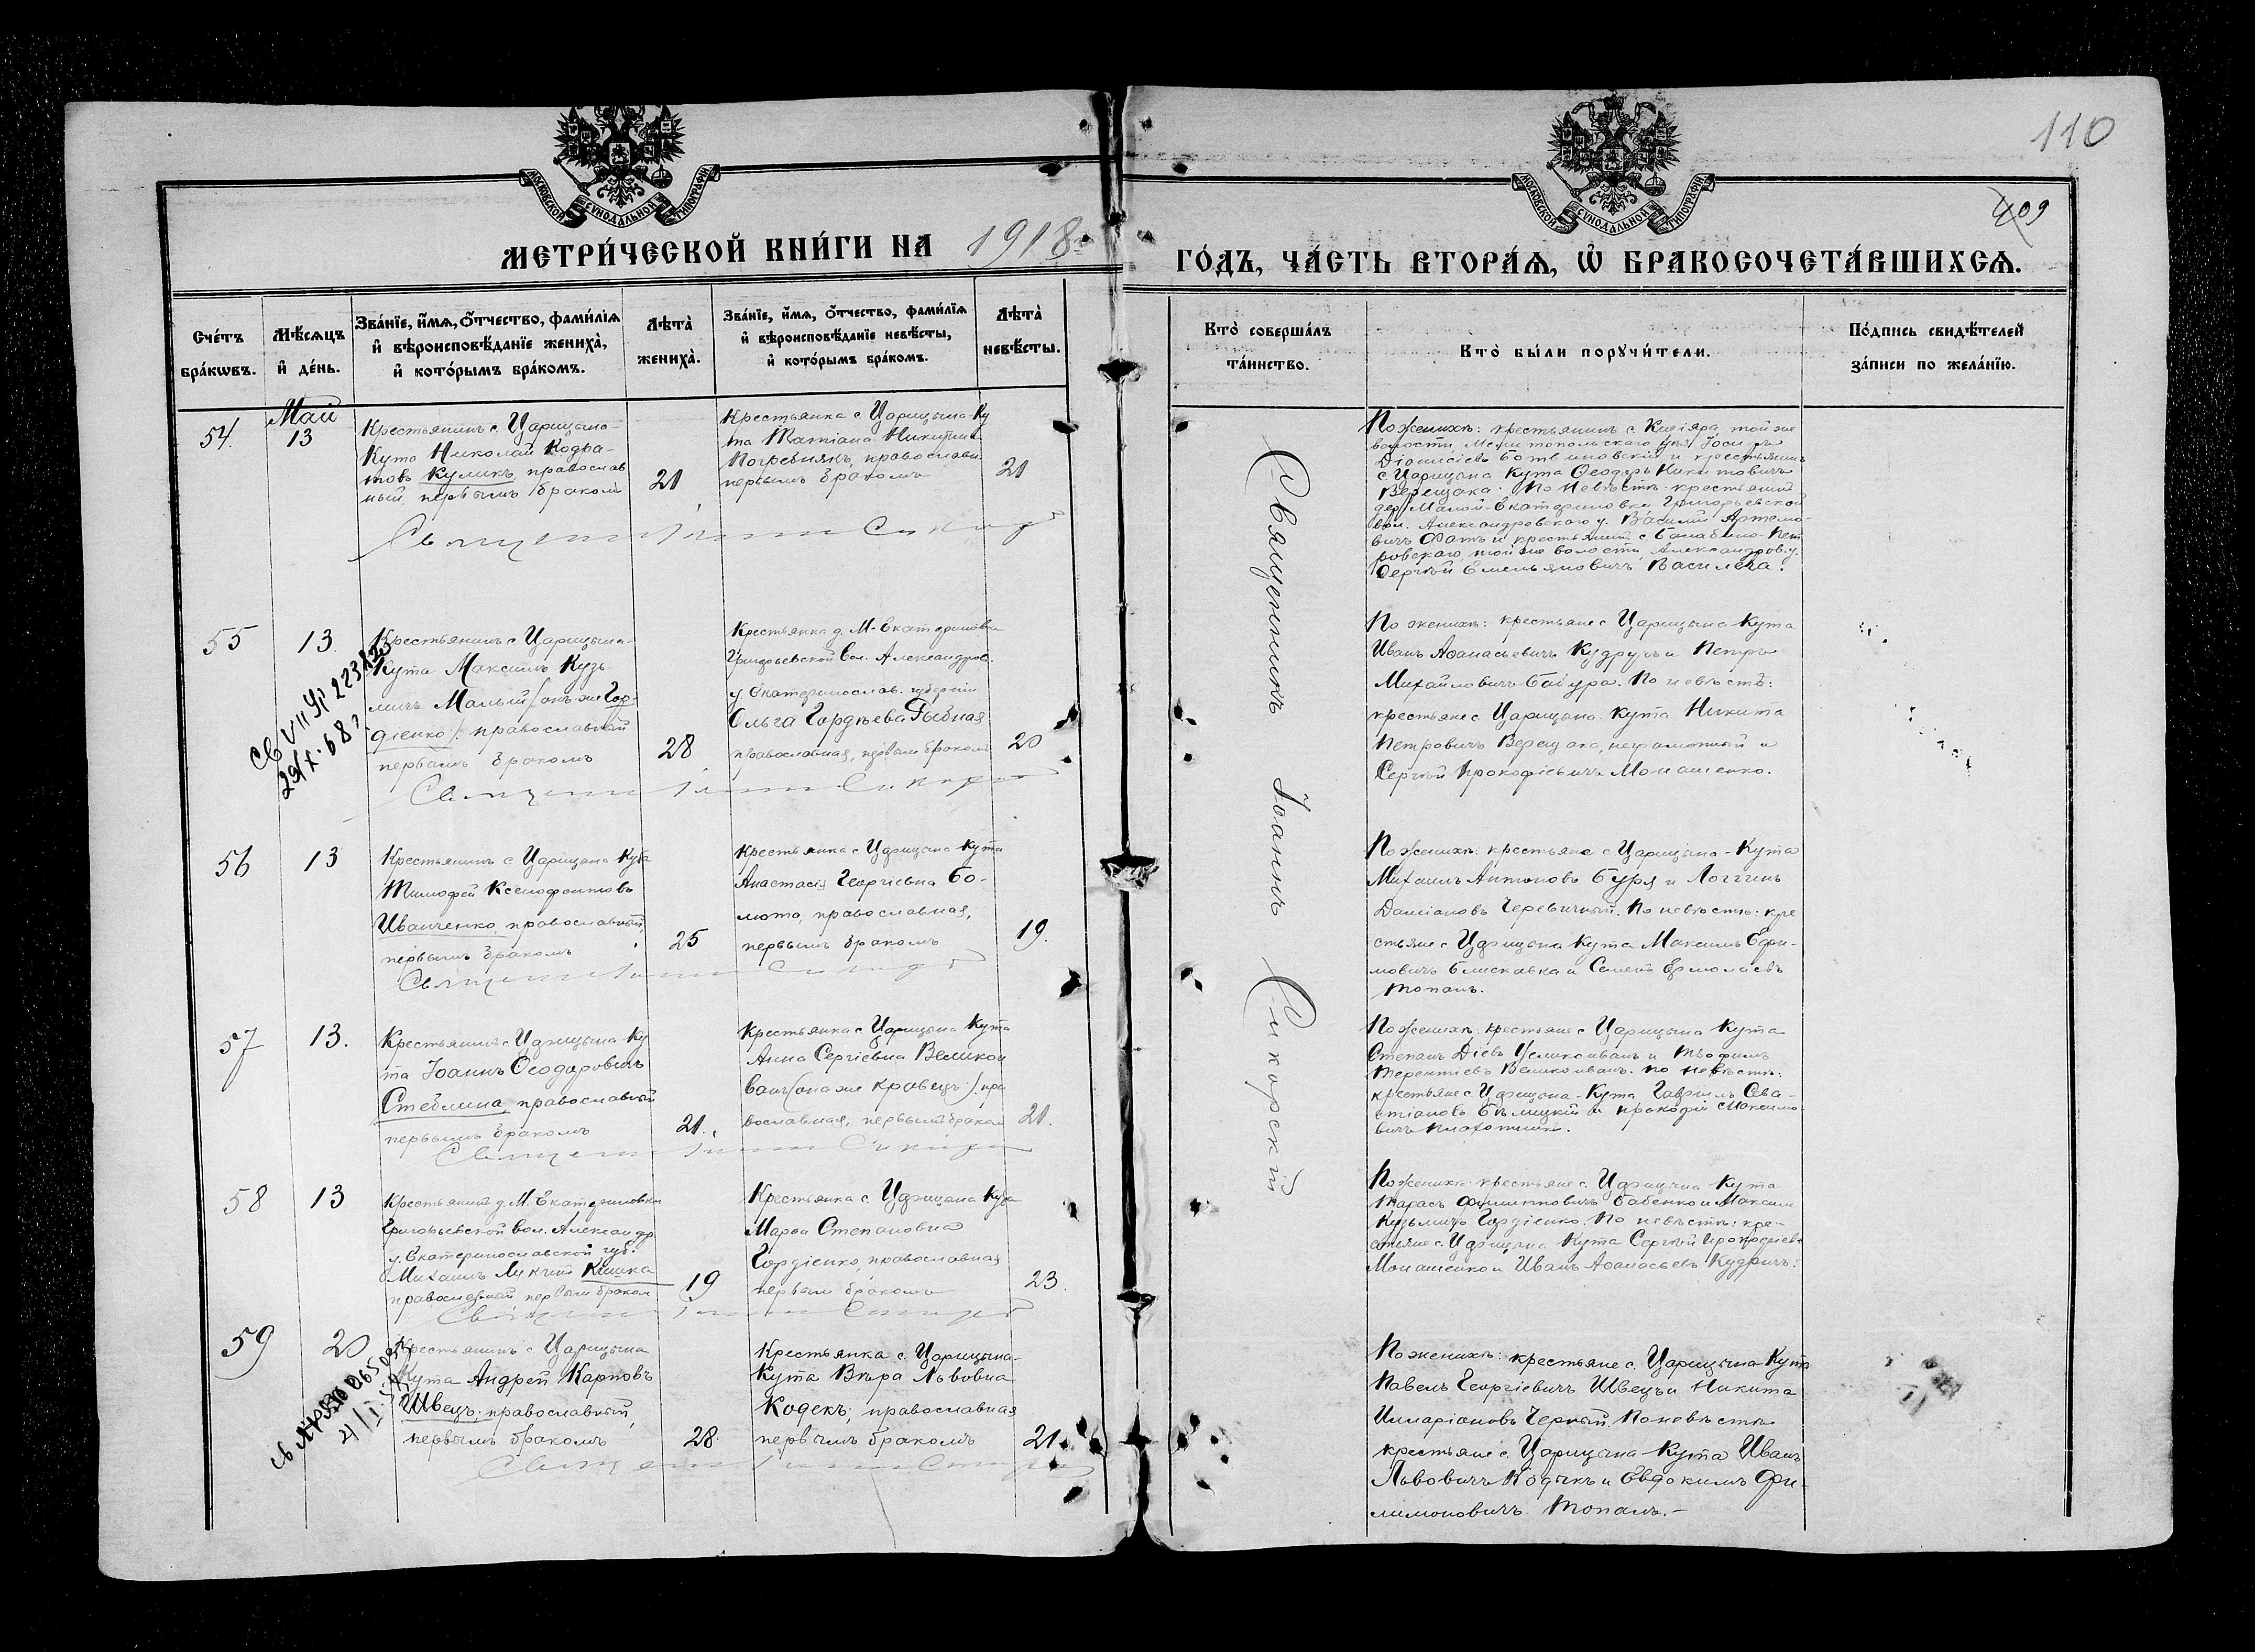 110
409
МОСКОВСКОЙ СѴНОДАЛЬНОЙ ТИПОГРАФІИ
МОСКОВСКОЙ СѴНОДАЛЬНОЙ ТИПОГРАФІИ
МЕТРИ́ЧЕСКОЙ КНИ́ГИ НА 1918
ГО́ДЪ, ЧА́СТЬ ВТОРА́Я, Ѡ҆ БРАКОСОЧЕТА́ВШИХСЯ.
Сче́тъ
бра́кѡвъ.
Мѣ́сяцъ
и҆ де́нь.
Зва́нїе, и҆́мя, ѻ҆́тчество, фами́лїя
и҆ вѣроисповѣ́данїе жениха̀,
и҆ кото́рымъ бра́комъ.
Лѣта̀
жениха̀.
Зва́нїе, и҆́мя, ѻ҆́тчество, фами́лїя
и҆ вѣроисповѣ́данїе невѣ́сты,
и҆ кото́рымъ бра́комъ.
Лѣта̀
невѣ́сты.
Кто̀ соверша́лъ
та́инство.
Кто̀ бы́ли порꙋчи́тели.
По́дпись свидѣ́телей
за́писи по жела́нїю.
54.
Май
13
Крестьянинъ с. Царицына-
Кута Николай Кодра-
товъ Куликъ, православ
ный, первымъ бракомъ
21
Крестьянка с Царицына Ку
та Татіана Никитина
Погребнякъ, православн.
первымъ бракомъ
21
Священникъ Іоаннъ Сикорскій
По женихѣ: крестьянинъ с.
волости Мелитопольскаго у. Іосифъ
Діонисіевъ и крестьянинъ
с Царицына Кута Ѳеодоръ Никитовичъ
Верещака. По невѣстѣ: крестьянинъ
дер. Малой-Екатериновки Григорьевской
вол. Александровскаго у. Василій Артемо-
вичъ и крестьянинъ с. Балабино-Пет
ровскаго, той же волости, Александров. у.
Сергѣй Емельяновичъ Василека.
55
13.
Крестьянинъ с Царицына-
Кута Максимъ Кузь-
мичъ Малый (онъ же Гор-
діенко), православный
первымъ бракомъ
28
Крестьянка д. М-Екатериновки
Григорьевской вол. Александров.
у Екатеринослав. губерніи
Ольга Гордѣева Рыбная
православная, первым браком
20
29/X-68 г.
Священникъ Іоаннъ Сикорскій
По женихѣ: крестьяне с Царицына Кута
Иванъ Аѳанасьевичъ Кудручъ и Петръ
Михайловичъ Бабура. По невѣстѣ:
крестьяне с Царицына Кута Никита
Петровичъ Верещака, неграмотный и
Сергѣй Прокофіевичъ Монашенко.
56
13
Крестьянинъ с Царицына Кута
Тимофей Ксенофонтовъ
Иванченко, православный,
первымъ бракомъ
25
Крестьянка с Царицына Кута
Анастасія Георгіевна Бо-
мота, православная,
первымъ бракомъ
19.
Священникъ Іоаннъ Сикорскій
По женихѣ: крестьяне с Царицына-Кута
Михаилъ Антоновъ Буря и Логгинъ
Даміановъ Черевичный. По невѣстѣ: кре
стьяне с Царицына Кута Максимъ Ефи-
мовичъ Блискавка и Семенъ Ермолаевъ
Топалъ.
57
13.
Крестьянинъ с Царицына Ку
та Іоаннъ Ѳеодоровичъ
Стеблина, православный
первымъ бракомъ
21.
Крестьянка с Царицына Кута
Анна Сергіевна Великои
ванъ (она же Кравецъ), пра
вославная, первымъ бракомъ
21.
Священникъ Іоаннъ Сикорскій
По женихѣ: крестьяне с Царицына Кута
Степанъ и
Терентіевъ Великоиванъ. По невѣстѣ:
крестьяне с Царицына-Кута Гавриилъ Сева-
стіановъ Бѣлицкій и Прокофій Максимо
вичъ
58
13
Крестьянинъ д. М. Екатериновки
Григорьевской вол. Александр.
у. Екатеринославской губ.
Михаилъ Кишка
православный первым браком
19
Крестьянка с. Царицына Кута
Марѳа Степановна
Гордіенко, православная
первым бракомъ
23.
Священникъ Іоаннъ Сикорскій
По женихѣ: крестьяне с. Царицына Кута
Тарасъ Филипповичъ Бабенко и Максим
Кузьмичъ Гордіенко. По невѣстѣ: кре-
стьяне с. Царицына Кута Сергѣй Прокофіевъ
Монашенко и Иванъ Аѳанасьевъ Кудричъ.
59
20
Крестьянинъ с Царицына
Кута Андрей Карповъ
Швецъ, православный,
первымъ бракомъ
28
Крестьянка с. Царицына-
Кута Вѣра Львовна
Кодекъ, православная
первымъ бракомъ
21.
Священникъ Іоаннъ Сикорскій
По женихѣ: крестьяне с. Царицына Кута
Павелъ Георгіевичъ Швецъ и Никита
Илларіоновъ Черный. По невѣстѣ
крестьяне с. Царицына Кута Иванъ
Львовичъ Кодыкъ и Евдокимъ Фи-
лимоновичъ Топалъ.-
Священникъ Іоаннъ Сикорскій